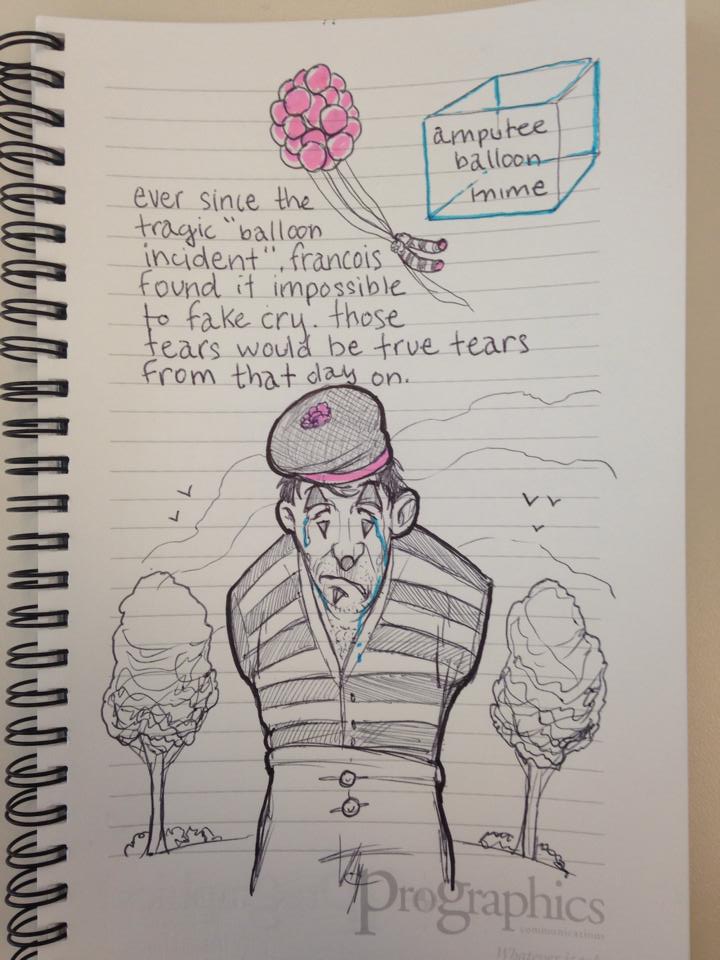 amputee
balloon
mime
ever since the
tragic "balloon
incident", francois
found it impossible
to fake cry. those
tears would be true tears
from that day on.
Prographics
communications